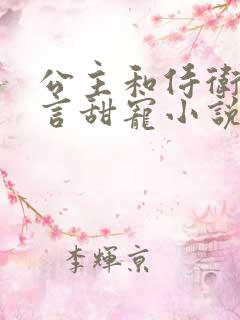 公主和侍衛
言甜寵小說
李輝京